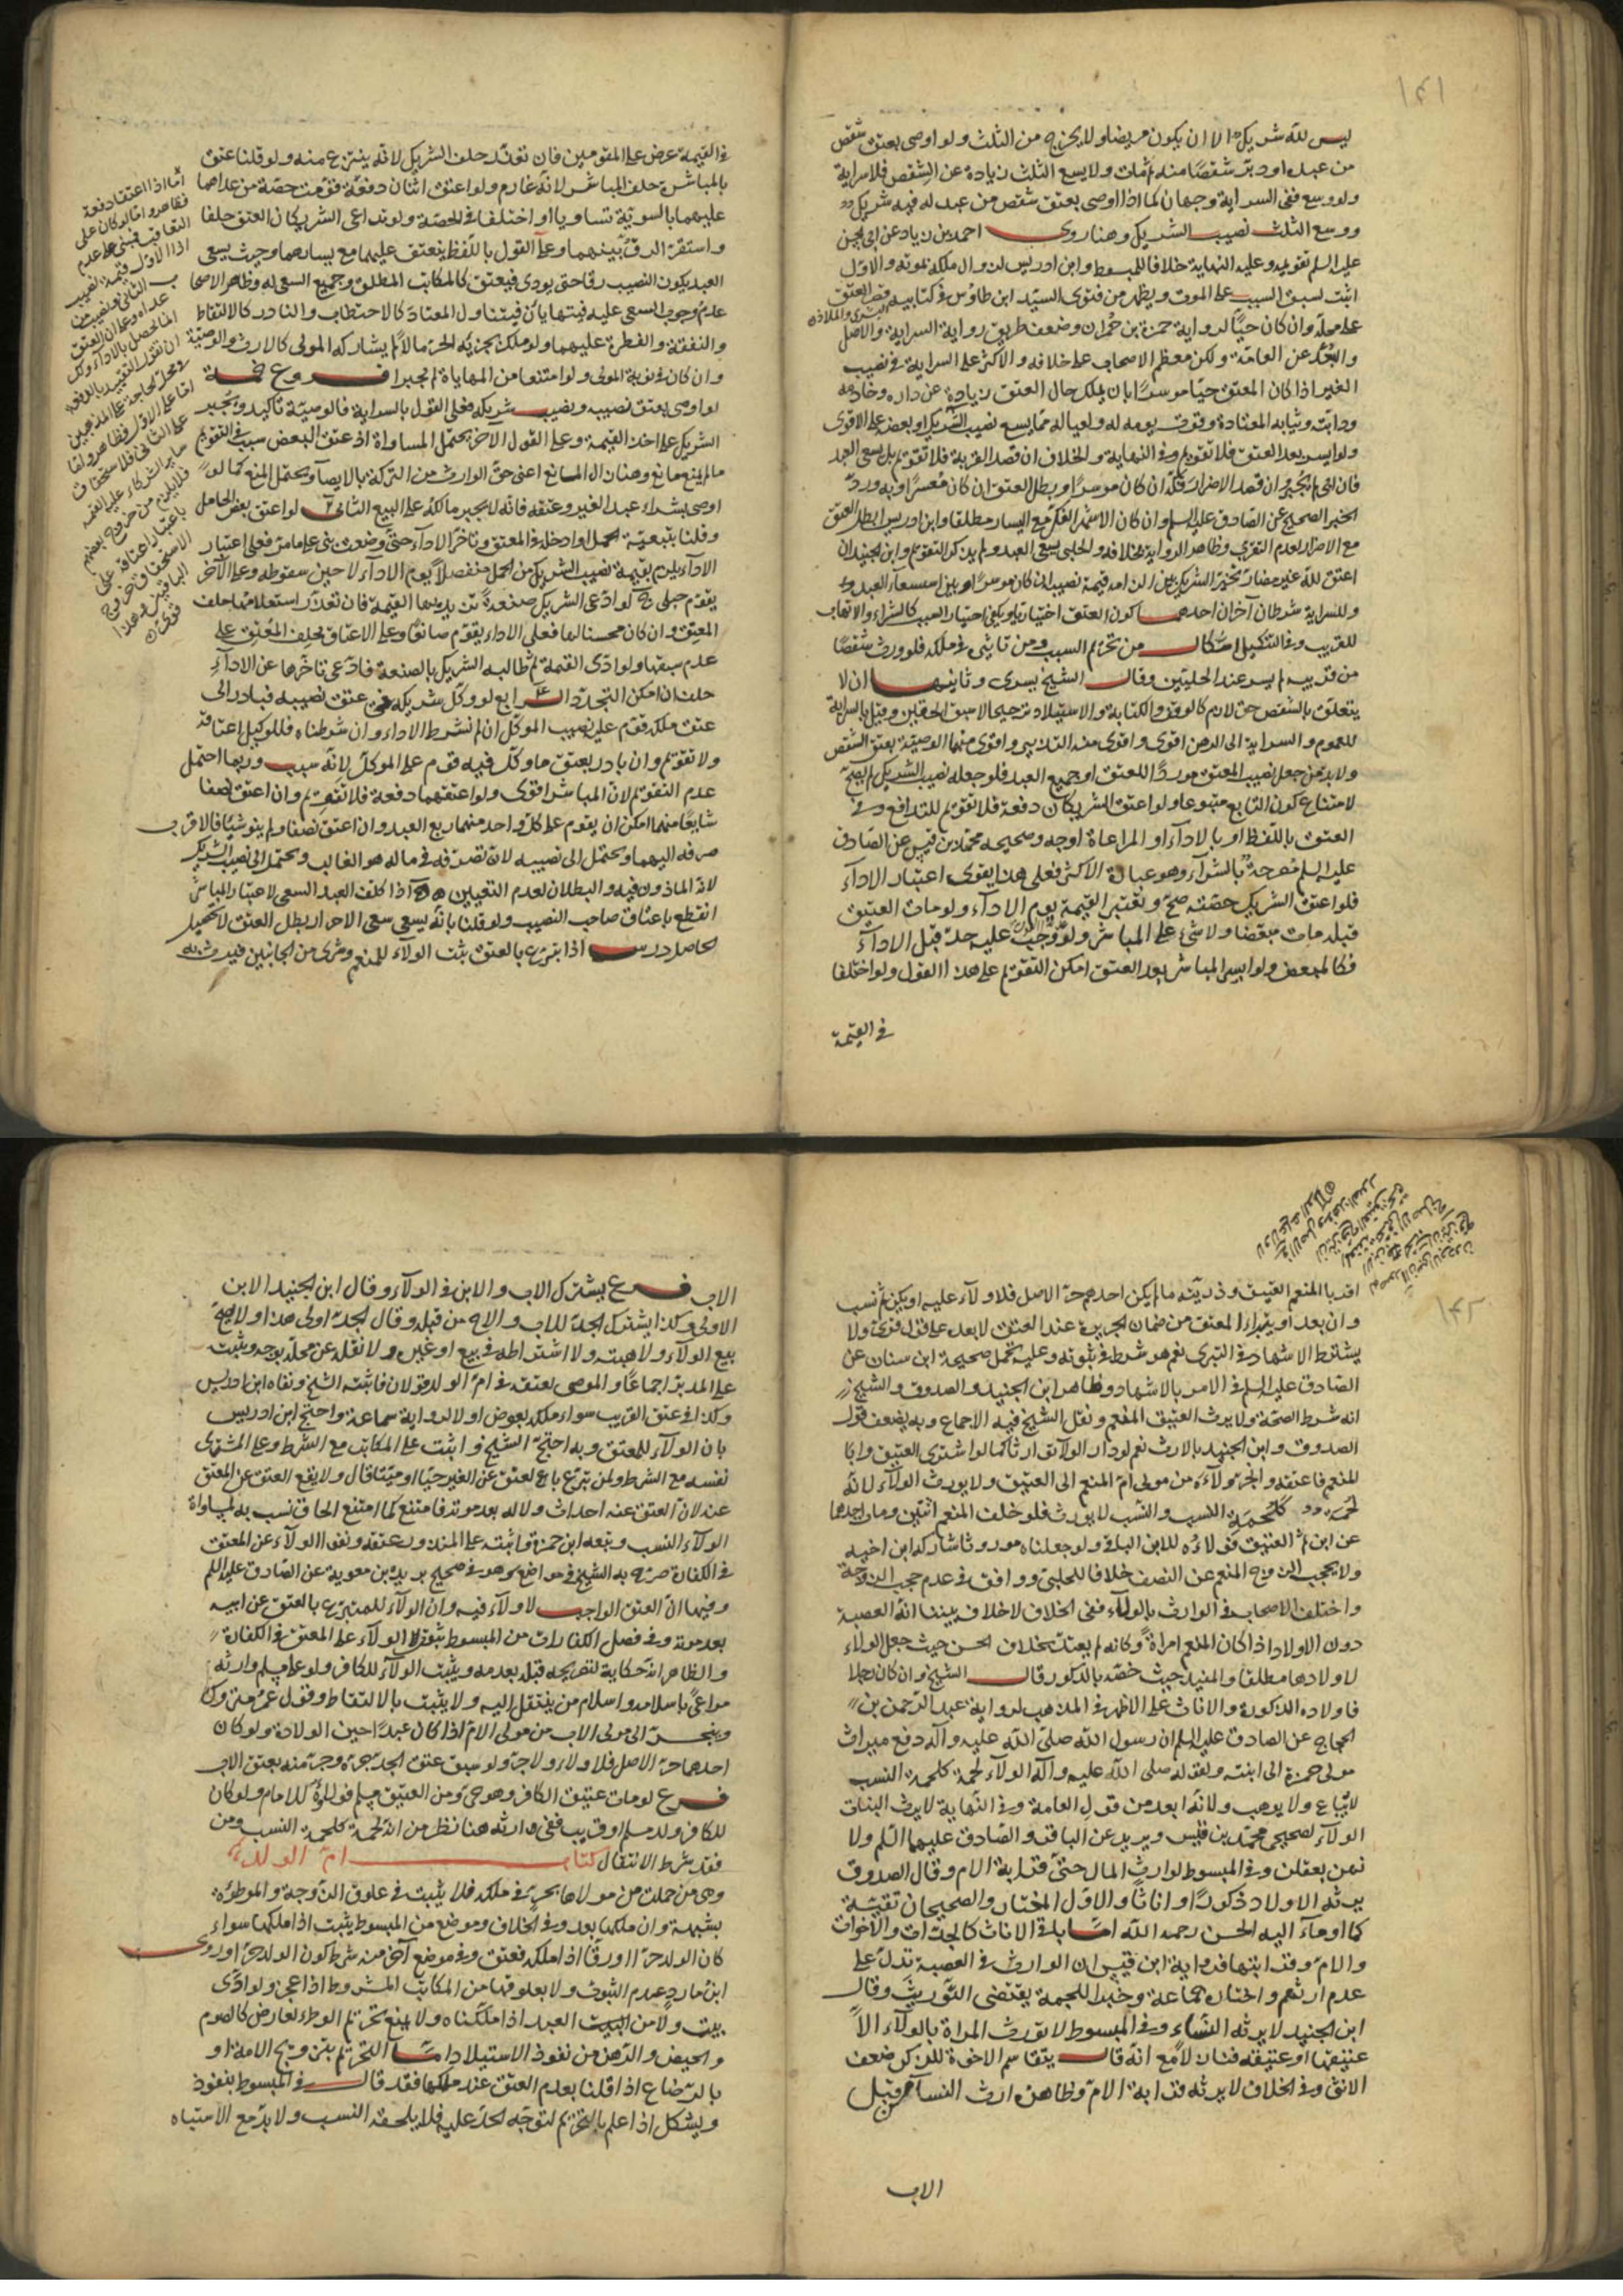 ليس لله شريك الا ان يكون مريضا ولا يخرج من الثلث ولو اوصى بعتق شقص
من عبده او دبر شقصا منه ثم مات ولا يسع الثلث زيادة عن الشقص فلا سراية
ولو وسع ففى السراية وجهان كما اذا اوصى بعتق شقص من عبد له فيه شريك
ووسع الثلث نصيب الشريك وهنا روى احمد بن زياد عن ابى الحسن
عليه السلم تقويمه وعليه النهاية خلافا للمبسوط وابن ادريس لزوال ملكه بموته والاول
اثبت لسبق السبب على الموت ويظهر من فتوى السيد ابن طاوس فى كتابيه قصر العتق
على محله وان كان حيا لرواية حمزة بن حمران وضعف طريق رواية السراية والاصل
ولكن معظم الاصحاب على خلافه والاكثر على السراية فى نصيب
الغير اذا كان المعتق حيا موسرا بان يملك حال العتق زيادة عن داره وخادمه
ودابته وثيابه المعتادة وقوت يومه له ولعياله مما يسع نصيب الشريك او بعضه على الاقوى
ولو ايسر بعد العتق فلا تقويم وفى النهاية والخلاف ان قصد القربة فلا تقويم بل يسعى العبد
فان ابى لم يجبر وان قصد الاضرار فكه ان كان موسرا وبطل العتق ان كان معسرا وبه ورد
الخبر الصحيح عن الصادق عليه السلم وان كان الاشهر الفك مع اليسار مطلقا وابن ادريس ابطل العتق
مع الاضرار لعدم التقرب وظاهر الرواية بخلافه والحلبى يسعى العبد ولم يذكر التقويم وابن الجنيد ان
اعتق لله غير مضار تخير الشريك بين الزامه قيمة نصيبه ان كان موسرا وبين استسعاء العبد
وللسراية شرطان آخران احدهما كون العتق اختياريا ويكفى اختيار السبب كالشراء والاتهاب
للقريب وفى التنكيل اشكال من تحريم السبب ومن تاثيره فى ملكه فلو ورث شقصا
من قريبه لم يسر عند الحليين وقال الشيخ يسرى وثانيهما ان لا
يتعلق بالشقص حق لازم كالوقف والكتابة والاستيلاد ترجيحا لاسبق الحقين وقيل بالسراية
للعموم والسراية الى الرهن اقوى واقوى منه التدبير واقوى منهما الوصية بعتق الشقص
ولا بد من جعل نصيب المعتق موردا للعتق او جميع العبد فلو جعله نصيب الشريك لم يصح
لامتناع كون التابع متبوعا ولو اعتق الشريكان دفعة فلا تقويم للتدافع وفى
العتق باللفظ او بالاداء او المراعاة اوجه وصحيحه محمد بن قيس عن الصادق
عليه السلم مصرحة بالشراء وهو عبارة الاكثر فعلى هذا يقوى اعتبار الاداء
فلو اعتق الشريك حصته صح وتعتبر القيمة يوم الاداء ولو مات العتيق
قبله مات مبعضا ولا شئ على المباشر ولو وجب عليه حد قبل الاداء
فكالمبعض ولو ايسر المباشر بعد العتق امكن التقويم على هذا القول ولو اختلفا
فى القيمة
فى القيمة عرض على المقومين فان تعذر حلف الشريك لانه ينتزع منه ولو قلنا عتق
بالمباشرة حلف المباشر لانه غارم ولو اعتق اثنان دفعة قومت حصة من عداهما
عليهما بالسوية تساويا او اختلفا فى الحصة ولو تداعى الشريكان العتق حلفا
واستقر الرق بينهما وعلى القول باللفظ ينعتق عليهما مع يسارهما وحيث يسعى
العبد يكون النصيب رقا حتى يودى فيعتق كالمكاتب المطلق وجميع السعى له وظاهر الاصحاب
عدم وجوب السعى عليه فيتهايان فيتناول المعتاد كالاحتطاب والنادر كالالتقاط
والنفقة والفطرة عليهما ولو ملك بجزئه الحر مالا لم يشاركه المولى كالارث والوصية
وان كان فى نوبة المولى ولو امتنعا من المهاياة لم يجبرا فروع خمسة
لو اوصى بعتق نصيبه ونصيب شريكه فعلى القول بالسراية فالوصية تاكيد ويجبر
الشريك على اخذ القيمة وعلى القول الآخر يحتمل المساواة اذ عتق البعض سبب فى التقويم
ما لم يمنع مانع وهنا زال المانع اعنى حق الوارث من التركة بالايصاء ويحتمل المنع كما لو
اوصى بشراء عبد الغير وعتقه فانه لا يجبر مالكه على البيع الثانى لو اعتق بعض الحامل
وقلنا بتبعية الحمل او ادخله فى المعتق وتاخر الاداء حتى وضعت بنى على ما مر فعلى اعتبار
الاداء يلزم بقيمة نصيب الشريك من الحمل منفصلا يوم الاداء لا حين سقوطه وعلى الآخر
يقوم حبلى لو ادعى الشريك صنعة تزيد بها القيمة فان تعذر استعلامها حلف
المعتق وان كان محسنا لها فعلى الاداء يقوم صانعا وعلى الاعتاق يحلف المعتق على
عدم سبقها ولو ادى القيمة ثم طالبه الشريك بالصنعة فادعى تاخرها عن الاداء
حلف ان امكن التجدد الرابع لو وكل شريكه فى عتق نصيبه فبادر الى
عتق ملكه قوم عليه نصيب الموكل ان لم نشترط الاداء وان شرطناه فللوكيل اعتاقه
ولا تقويم وان بادر بعتق ما وكل فيه قوم على الموكل لانه سبب وربما احتمل
عدم التقويم لان المباشر اقوى ولو اعتقهما دفعة فلا تقويم وان اعتق نصفا
شايعا منهما امكن ان يقوم على كل واحد منهما ربع العبد وان اعتق نصفا ولم ينو شيئا فالاقرب
صرفه اليهما ويحتمل الى نصيبه لان تصرفه فى ماله هو الغالب ويحتمل الى نصيب الشريك
لانه الماذون فيه والبطلان لعدم التعيين اذا كلف العبد السعى لاعتبار المباشر
انقطع باعتاق صاحب النصيب ولو قلنا بانه يسعى سعى الاحرار بطل العتق لا تحصيل
الحاصل درس اذا تبرع بالعتق ثبت الولاء للمنعم وترى من الجانبين فيرث
اقرباء المنعم العتيق وذريته ما لم يكن احدهم حر الاصل فلا ولاء عليه او يكن ثم نسب
وان بعد او يتبراء المعتق من ضمان الجريرة عند العتق لا بعده على قول قوى ولا
يشترط الاشهاد فى التبرى نعم هو شرط فى ثبوته وعليه تحمل صحيحة ابن سنان عن
الصادق عليه السلم فى الامر بالاشهاد وظاهر ابن الجنيد والصدوق والشيخ
انه شرط الصحة ولا يرث العتيق المنعم ونقل الشيخ فيه الاجماع وبه يضعف قول
الصدوق وابن الجنيد بالارث نعم لو دار الولاء توارثا كما لو اشترى العتيق ابا
المنعم فاعتقه وانجر ولاءه من مولى ام المنعم الى العتيق ولا يورث الولاء لانه
لحمة كلحمة النسب والنسب لا يورث فلو خلف المنعم اثنين ومات احدهما
عن ابن ثم العتيق فولاءه للابن الباقى ولو جعلناه موروثا شاركه ابن اخيه
ولا يحجب الزوج المنعم عن النصف خلافا للحلبى ووافق فى عدم حجب الزوجة
واختلف الاصحاب فى الوارث بالولاء ففى الخلاف لا خلاف بيننا انه العصبة
دون الاولاد اذا كان المنعم امراة وكانه لم يعتد بخلاف الحسن حيث جعل الولاء
لاولادها مطلقا والمفيد حيث خصه بالذكور قال الشيخ وان كان رجلا
فاولاده الذكورة والاناث على الاظهر فى المذهب لرواية عبد الرحمن بن
الحجاج عن الصادق عليه السلم ان رسول الله صلى الله عليه وآله دفع ميراث
مولى حمزة الى ابنته ولقوله صلى الله عليه وآله الولاء لحمة كلحمة النسب
لا يباع ولا يوهب ولانه ابعد من قول العامة وفى النهاية لا يرث البنات
الولاء لصحيحى محمد بن قيس وبريد عن الباقر والصادق عليهما السلم ولا
نهن يعقلن وفى المبسوط لوارث المال حتى قرابة الام وقال الصدوق
يرثه الاولاد ذكورا او اناثا والاول المختار والصحيحان تقية
كما اوماء اليه الحسن رحمه الله اما باقى الاناث كالجدات والاخوات
والام وقرابتها فرواية ابن قيس ان الوارث فى العصبة تدل على
عدم ارثهم واختاره جماعة وخبر اللحمة يقتضى التوريث وقال
ابن الجنيد لا يرثه النساء وفى المبسوط لا تورث المراة بالولاء الا
عتيقها او عتيقه فنازلا مع انه قال يتقاسم الاخوة للذكر ضعف
الانثى وفى الخلاف لا يرثه قرابة الام وظاهره ارث النساء من قبل
الاب
الاب فرع يشترك الاب والابن فى الولاء وقال ابن الجنيد الابن
اولى وكذا يشترك الجد للاب والاخ من قبله وقال الجد اولى هذا ولا يصح
بيع الولاء ولا هبته ولا اشتراطه فى بيع او غيره ولا نقله عن محله بوجه ويثبت
على المدبر اجماعا والموصى بعتقه وفى ام الولد قولان فاثبته الشيخ ونفاه ابن ادريس
وكذا فى عتق القريب سواء ملكه بعوض او لا لرواية سماعة واحتج ابن ادريس
بان الولاء للمعتق وبه احتج الشيخ ويثبت على المكاتب مع الشرط وعلى المشترى
نفسه مع الشرط ولمن تبرع بالعتق عن الغير حيا او ميتا قال ولا يقع العتق عن المعتق
عنه لان العتق عنه احداث ولاء له بعد موته فامتنع كما امتنع الحاق نسب به لمساواة
الولاء النسب وتبعه ابن حمزة واثبته على المنذور عتقه ونفوا الولاء عن المعتق
فى الكفارة صرح به الشيخ فى مواضع وهو فى صحيح بريد بن معوية عن الصادق عليه السلم
وفيها ان العتق الواجب لا ولاء فيه وان الولاء للمتبرع بالعتق عن ابيه
بعد موته وفى فصل الكفارات من المبسوط ثبوت الولاء على المعتق فى الكفارة
والظاهر انه حكاية لتصريحه قبله بعدمه ويثبت الولاء للكافر ولو على مسلم وارثه
مراعى باسلامه واسلام من ينتقل اليه ولا يثبت بالالتقاط وقول عمر متروك
وينجر الى مولى الاب من مولى الام اذا كان عبدا حين الولادة ولو كان
احدهما حر الاصل فلا ولاء ولا جر ولو سبق عتق الجد جره وجر منه بعتق الاب
فرع لو مات عتيق الكافر وهو حى ومن العتيق مسلم فولاؤه للامام ولو كان
للكافر ولد مسلم او قريب ففى وارثه هنا نظر من انه لحمة كلحمة النسب ومن
فقد شرط الانتقال كتاب ام الولد
وهى من حملت من مولاها بحر فى ملكه فلا يثبت فى علوق الزوجة والموطوءة
بشبهة وان ملكها بعد وفى الخلاف وموضع من المبسوط يثبت اذا ملكها سواء
كان الولد حرا او رقا اذا ملكه فعتق وفى موضع آخر منه شرط كون الولد حرا وروى
ابن مارد عدم الثبوت ولا بعلوقها من المكاتب المشروط اذا عجز ولو ادى
يثبت ولا من العبد اذا ملكناه ولا يمنع تحريم الوطء لعارض كالصوم
والحيض والرهن من نفوذ الاستيلاد اما التحريم بتزويج الامة او
بالرضاع اذا قلنا بعدم العتق عند ملكها فقد قال فى المبسوط بنفوذه
ويشكل اذا علم بالتحريم لتوجه الحد عليه فلا يلحقه النسب ولا بد مع الاشتباه